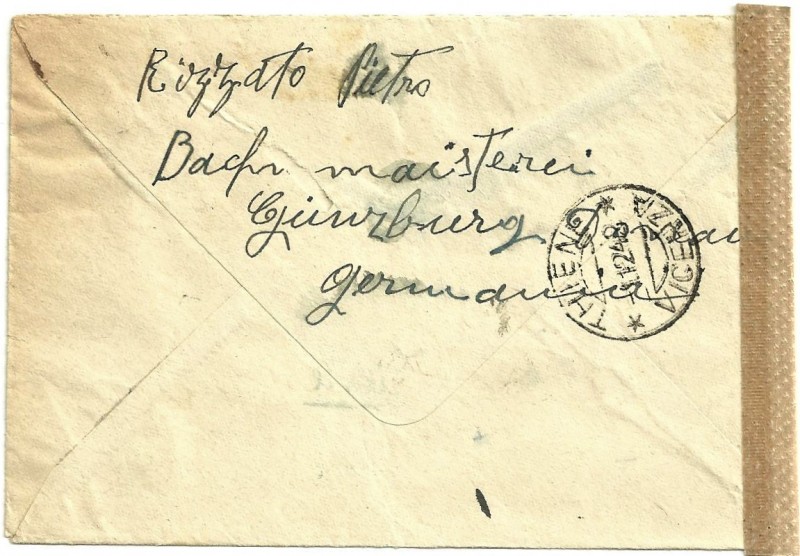 Rizzato Pietro
Bachmaisterei
Günzburg Donau
Germania
* THIENE * VICENZA